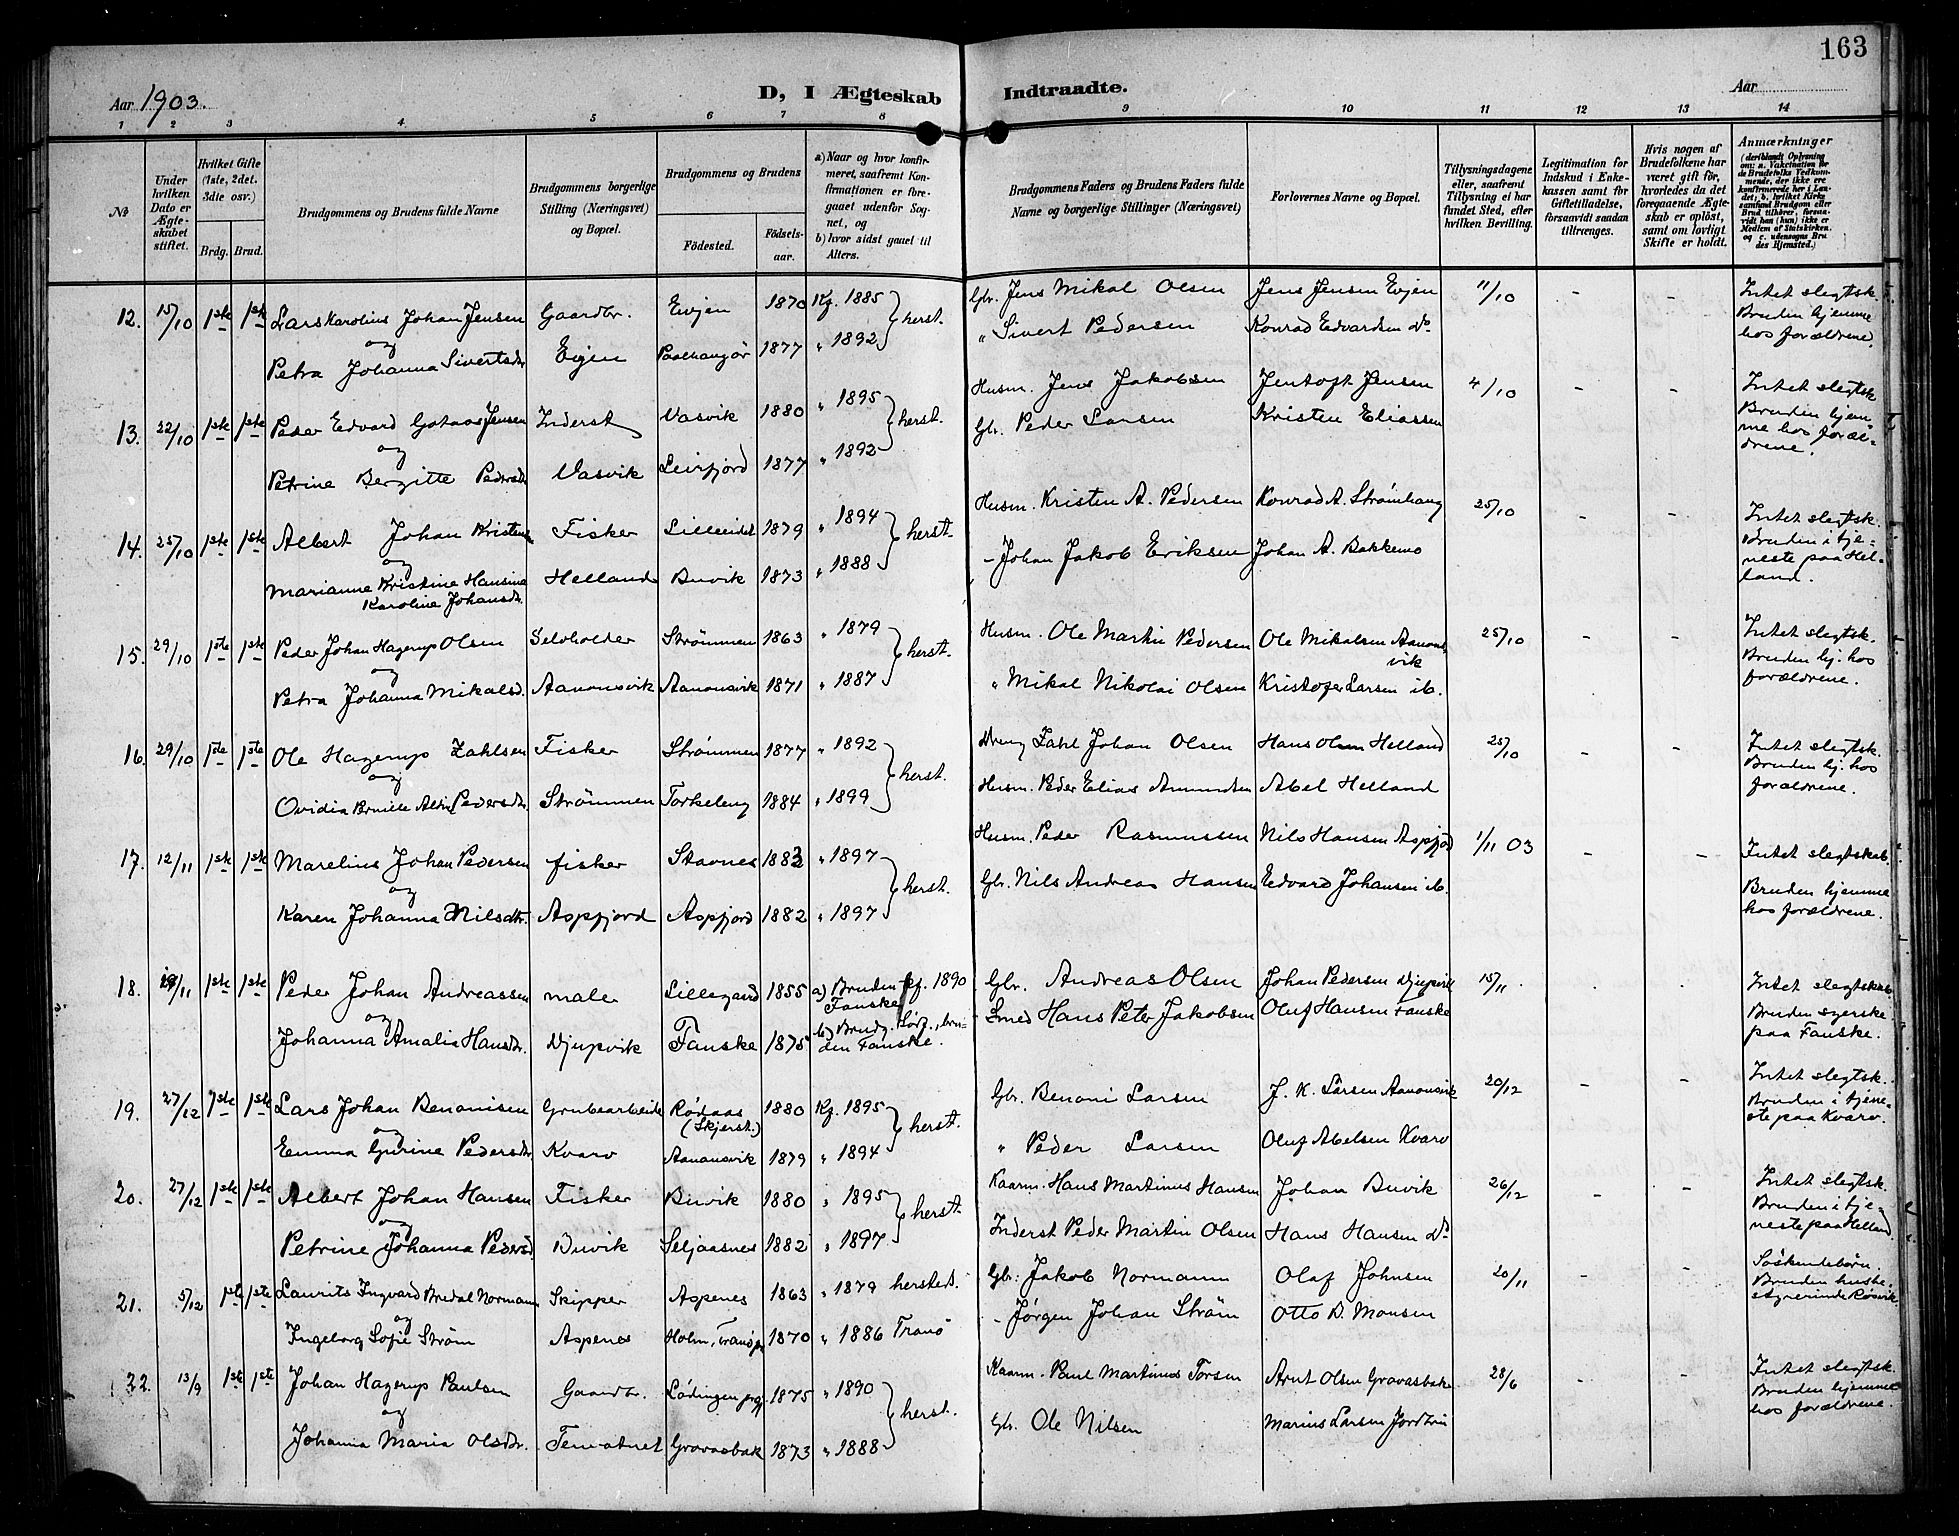 163
Aar 1903. D, I Ægteskab Indtraadte. Aar
1 2 3 4 5 6 7 8 9 10 11 12 13 14
№
Under hvilken Dato er Ægteskabet stiftet.
Hvilket Gifte (1ste, 2det, 3die osv.)
Brdg. Brud.
Brudgommens og Brudens fulde Navne
Brudgommens borgerlige Stilling (Næringsvei) og Bopæl.
Brudgommens og Brudens
Fødested. Fødselsaar.
a) Naar og hvor konfirmeret, saafremt Konfirmationen er foregaaet udenfor Sognet, og
b) hvor sidst gaaet til Alters.
Brudgommens Faders og Brudens Faders fulde Navne og borgerlige Stillinger (Næringsvei)
Forlovernes Navne og Bopæl.
Tillysningsdagene eller, saafremt Tillysning ei har fundet Sted, efter hvilken Bevilling.
Legitimation for Indskud i Enkekassen samt for Giftetilladelse, forsaavidt saadan tiltrænges.
Hvis nogen af Brudefolkene har været gift før, hvorledes da det foregaaende Ægteskab er opløst, samt om lovligt Skifte er holdt.
Anmærkninger
(deriblandt Oplysning om: a. Vaccination for de Brudefolks Vedkommende, der ikke ere konfirmerede her i Landet; b. hvilket Kirkesamfund Brudgom eller Brud tilhører, forsaavidt han (hun) ikke er Medlem af Statskirken. og c. udensogns Brudes Hjemsted.)
12. 15/10 1ste 1ste Lars Karolius Johan Jensen Gaardbr. Evjen 1870 Kg. 1885 herst. Gbr. Jens Mikal Olsen Jens Jensen Evjen 11/10 - - Intet slegtsk.
og Bruden hjemme
Petra Johanna Sivertsdr Evjen 1877 " 1892 " Sivert Pedersen Konrad Edvardsen do hos forældrene.
13. 22/10 1ste 1ste Peder Edvard Jensen Inderst Vasvik 1880 " 1895 herst. Husm. Jens Jakobsen Jentoft Jensen 4/10 - - Intet slegtsk
og Bruden hjem-
Petrine Bergitte Pedersdr Vasvik Leirfjord 1877 " 1892 Gbr. Peder Larsen Kristen Eliassen me hos foræl-
drene.
14. 25/10 1ste 1ste Albert Johan Kristens Fisker Lilleeidet 1879 " 1894 herst. Husm. Kristen A. Pedersen Konrad A. Strømhaug 25/10 - - Intet slegtsk.
og Bruden i tje-
Marianne Kristine Hansine Helland Buvik 1873 " 1888 - Johan Jakob Eriksen Johan A. Bakkemo neste paa Hel-
Karoline Johansdr. land.
15. 29/10 1ste 1ste Peder Johan Hagerup Olsen Selvholder Strømmen 1863 " 1879 herst. Husm. Ole Martin Pedersen Ole Mikalsen Aanons 25/10 - - Intet slegtsk.
og vik Bruden hj. hos
Petra Johanna Mikalsd. Aanonsvik Aanonsvik 1871 " 1887 " Mikal Nikolai Olsen Kristofer Larsen ib. forældrene.
16. 29/10 1ste 1ste Ole Hagerup Zahlsen Fisker Strømmen 1877 " 1892 herst. Dreng Zahl Johan Olsen Hans Olsen Helland 25/10 - - Intet slegtsk.
og Bruden hj. hos
Ovidia Pedersdr. Strømmen Torkeleng 1884 " 1899 Husm. Peder Elias Amundsen Abel Helland forældrene.
17. 12/11 1ste 1ste Marelius Johan Pedersen fisker Stavnes 1883 " 1897 herst. Husm. Peder Rasmussen Nils Hansen Aspfjord 1/11 03 - - Intet slegtskab.
og Bruden hjemme
Karen Johanna Nilsdtr. Aspfjord Aspfjord 1882 " 1897 Gbr. Nils Andreas Hansen Edvard Johansen ib. hos forældrene.
18. /11 1ste 1ste Peder Johan Andreassen maler Lillegaard 1855 a) Bruden kf. 1890 Gbr. Andreas Olsen Johan Pedersen Djupvik 15/11 . . Intet slegtskab
og Fauske Bruden syerske
Johanna Amalia Hansdr. Djupvik Fauske 1875 b) Brudg. Sørf., bru- Smed Hans Peter Jakobsen Oluf Hansen Fauske paa Fauske.
den Fauske.
19. 27/12 1ste 1ste Lars Johan Benonisen Grubearbeide Rødaas 1880 Kg. 1895 herst. Gbr. Benoni Larsen J. K. Larsen Aanonsvik 20/12 - - Intet slegtsk.
og (Skjerst.) Bruden i tjene-
Emma Gurine Pedersdr Kvarv Aanonsvik 1879 " 1894 " Peder Larsen Oluf Abelsen Kvarv ste paa Kvarv.
20. 27/12 1ste 1ste Albert Johan Hansen Fisker Buvik 1880 " 1895 herst. Kaarm. Hans Martinus Hansen Johan Buvik 26/12 - - Intet slegtsk.
og Bruden i tje-
Petrine Johanna Pedersd Buvik Seljaasnes 1882 " 1897 Inderst Peder Martin Olsen Hans Hansen do neste paa Helland
21. 5/12 1ste 1ste Laurits Ingvard Bredal Normann Skipper Aspenes 1863 " 1879 herstedt. Gbr: Jakob Normann Olaf Johnsen 20/11 - - Søskendebørn.
og Bruden huste-
Ingeborg Sofie Strøm Aspenes Holm, Tranø pg 1870 " 1886 Tranø - Jørgen Johan Strøm Otto B. Monsen styrerinde Røsvik
22. 13/9 1ste 1ste Johan Hagerup Paulsen Gaardbr. Lødingen prgj. 1875 " 1890 herst. Kaarm. Paul Martinus Torsen Arnt Olsen Gravasbak 28/6 - - Intet slegtsk.
og Bruden hjemme
Johanna Maria Olsdr. Temvatnet Gravasbak 1873 " 1888 Gbr. Ole Nilsen Marius Larsen Jordtru hos forældrene.